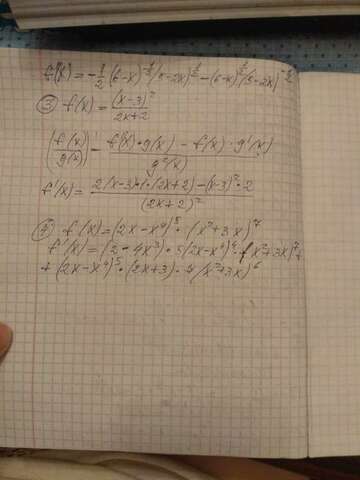 f'(x) = -1/2 (6-x)^-1/2 (5-2x)^1/2 - (6-x)^1/2 (5-2x)^-1/2
③ f(x) = (x-3)^2 / 2x+2
(f(x)/g(x))' = f'(x)·g(x) - f(x)·g'(x) / g^2(x)
f'(x) = 2(x-3)·(2x+2) - (x-3)^2·2 / (2x+2)^2
④ f(x) = (2x-x^4)^5 · (x^2+3x)^7
f'(x) = (2-4x^3)·5(2x-x^4)^4·(x^2+3x)^7
+ (2x-x^4)^5·(2x+3)·7(x^2+3x)^6